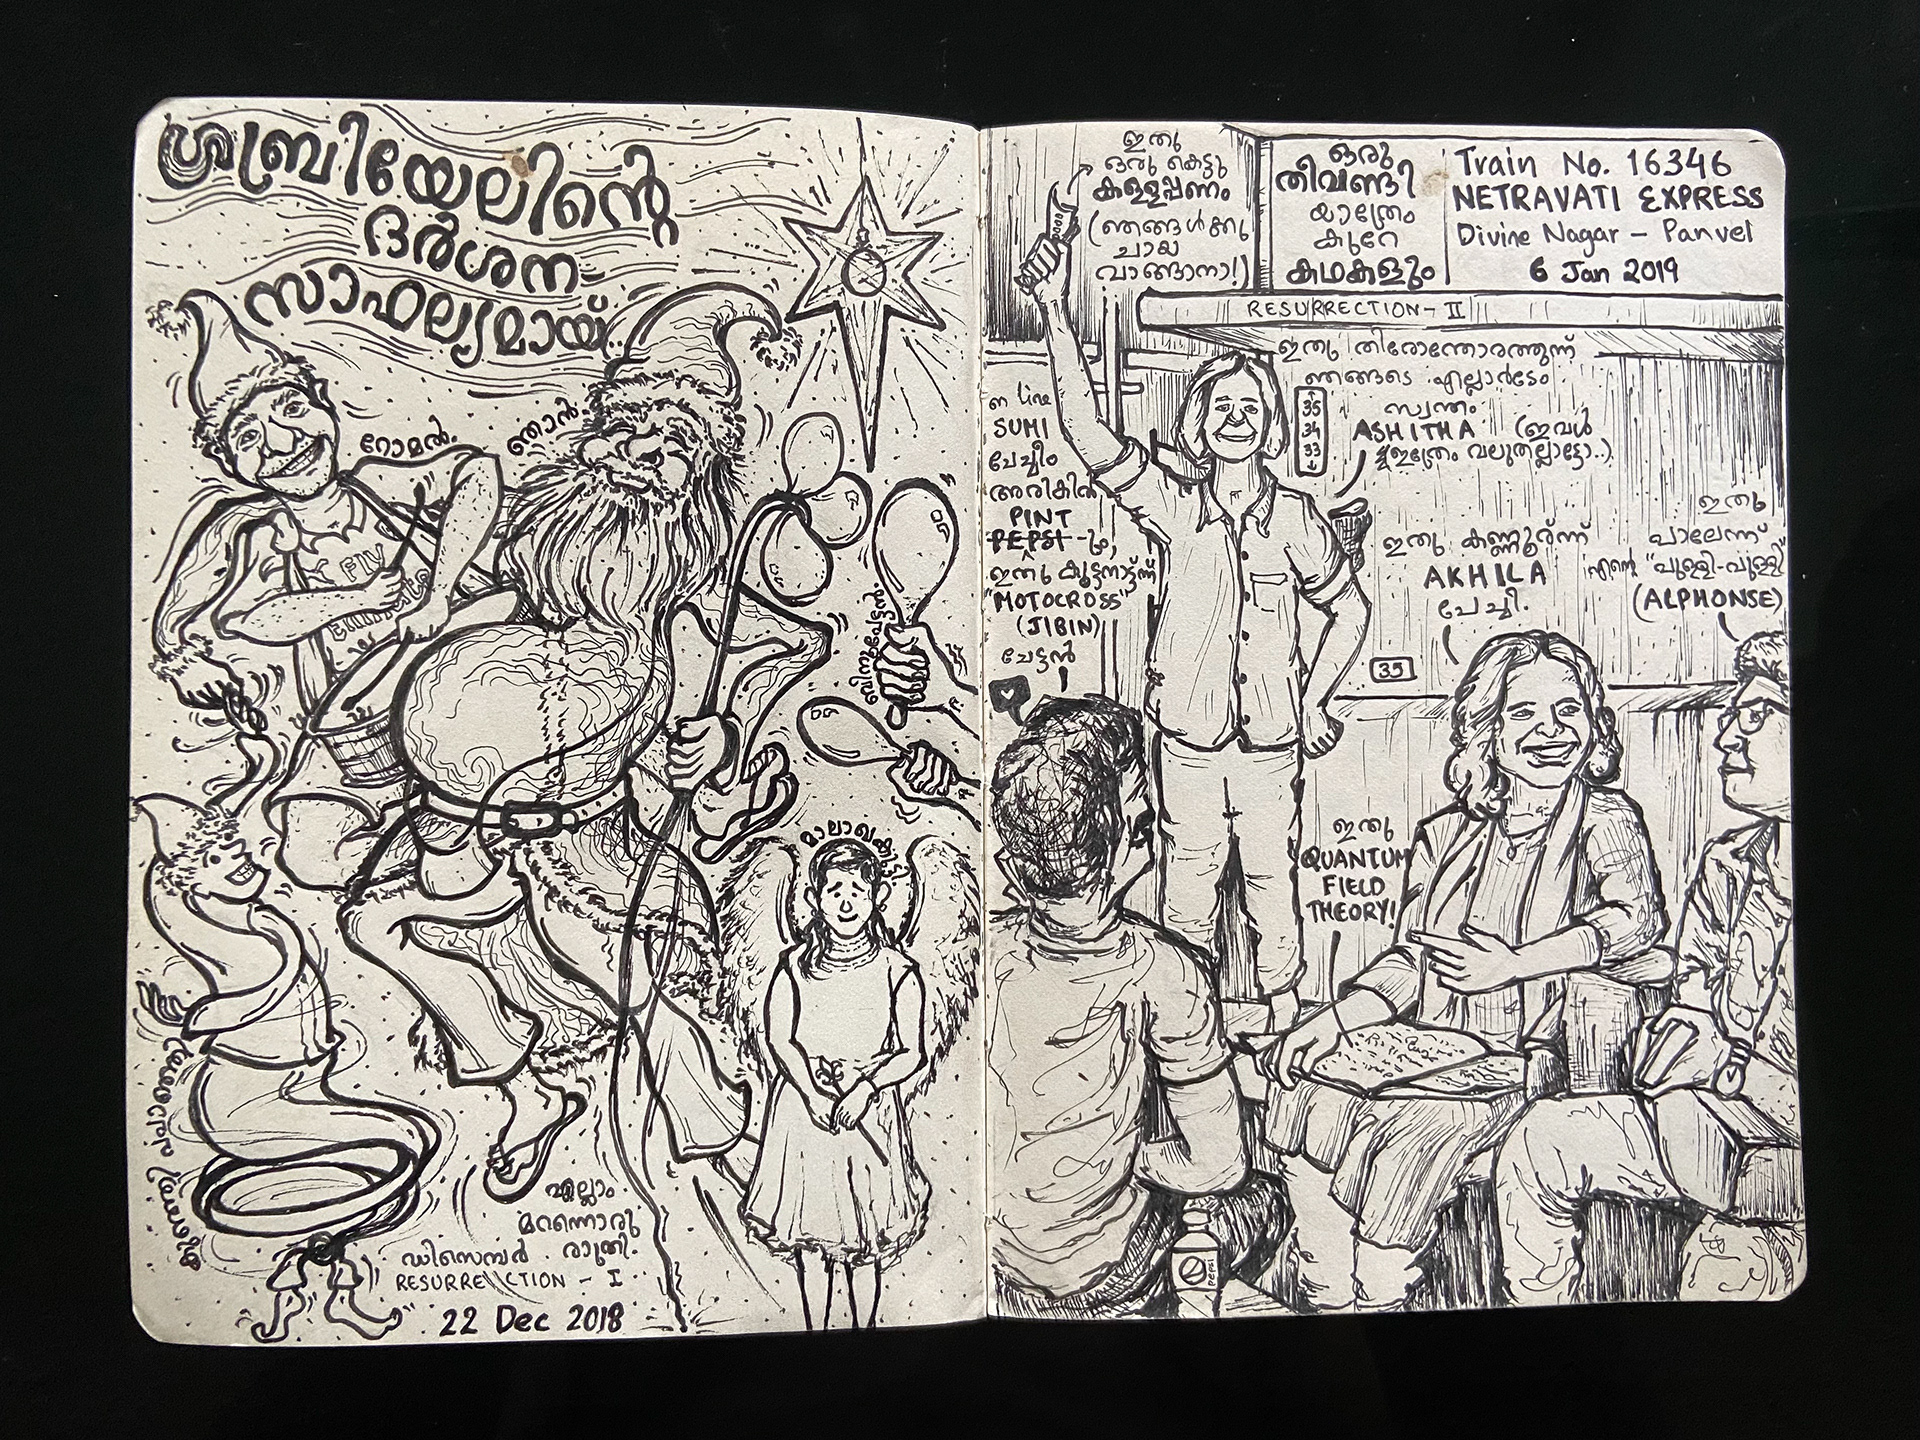 ഗ്രബ്രിയേലിന്റെ
ദർശന
സാഫല്യമായ്..
റോമൻ.
ഞാൻ.
FIV
മാലാഖകുട്ടി
എല്ലാം
മറന്നൊരു
രാത്രി.
ഡിസെമ്പർ
RESURRECTION - I
22 Dec 2018
ഇതു
ഒരു കെട്ടു
കള്ളപ്പണം
(ഞങ്ങൾക്കു
ചായ
വാങ്ങാനാ!)
ഒരു
തീവണ്ടി
യാത്രേം
കുറേ
കഥകളും
Train No. 16346
NETRAVATI EXPRESS
Divine Nagar - Panvel
6 Jan 2019
RESURRECTION - II
ഇതു തിരോന്തോരത്തുന്ന്
ഞങ്ങടെ എല്ലാർടേം
സ്വന്തം
ASHITHA (ഇവൾ
ഇത്രേം വലുതല്ലാട്ടോ..)
35
34
33
on line
SUMI
ചേച്ചീം
അരികിൽ
PINT
PEPSI-ഉം,
ഇതു കുട്ടനാട്ട്ന്ന്
"MOTOCROSS"
(JIBIN)
ചേട്ടൻ
ഇതു കണ്ണൂർന്ന്
AKHILA
ചേച്ചി.
ഇതു
പാലേന്ന്
എന്റെ "പുള്ളി-പുള്ളി"
(ALPHONSE)
35
ഇതു
QUANTUM
FIELD
THEORY!
pepsi